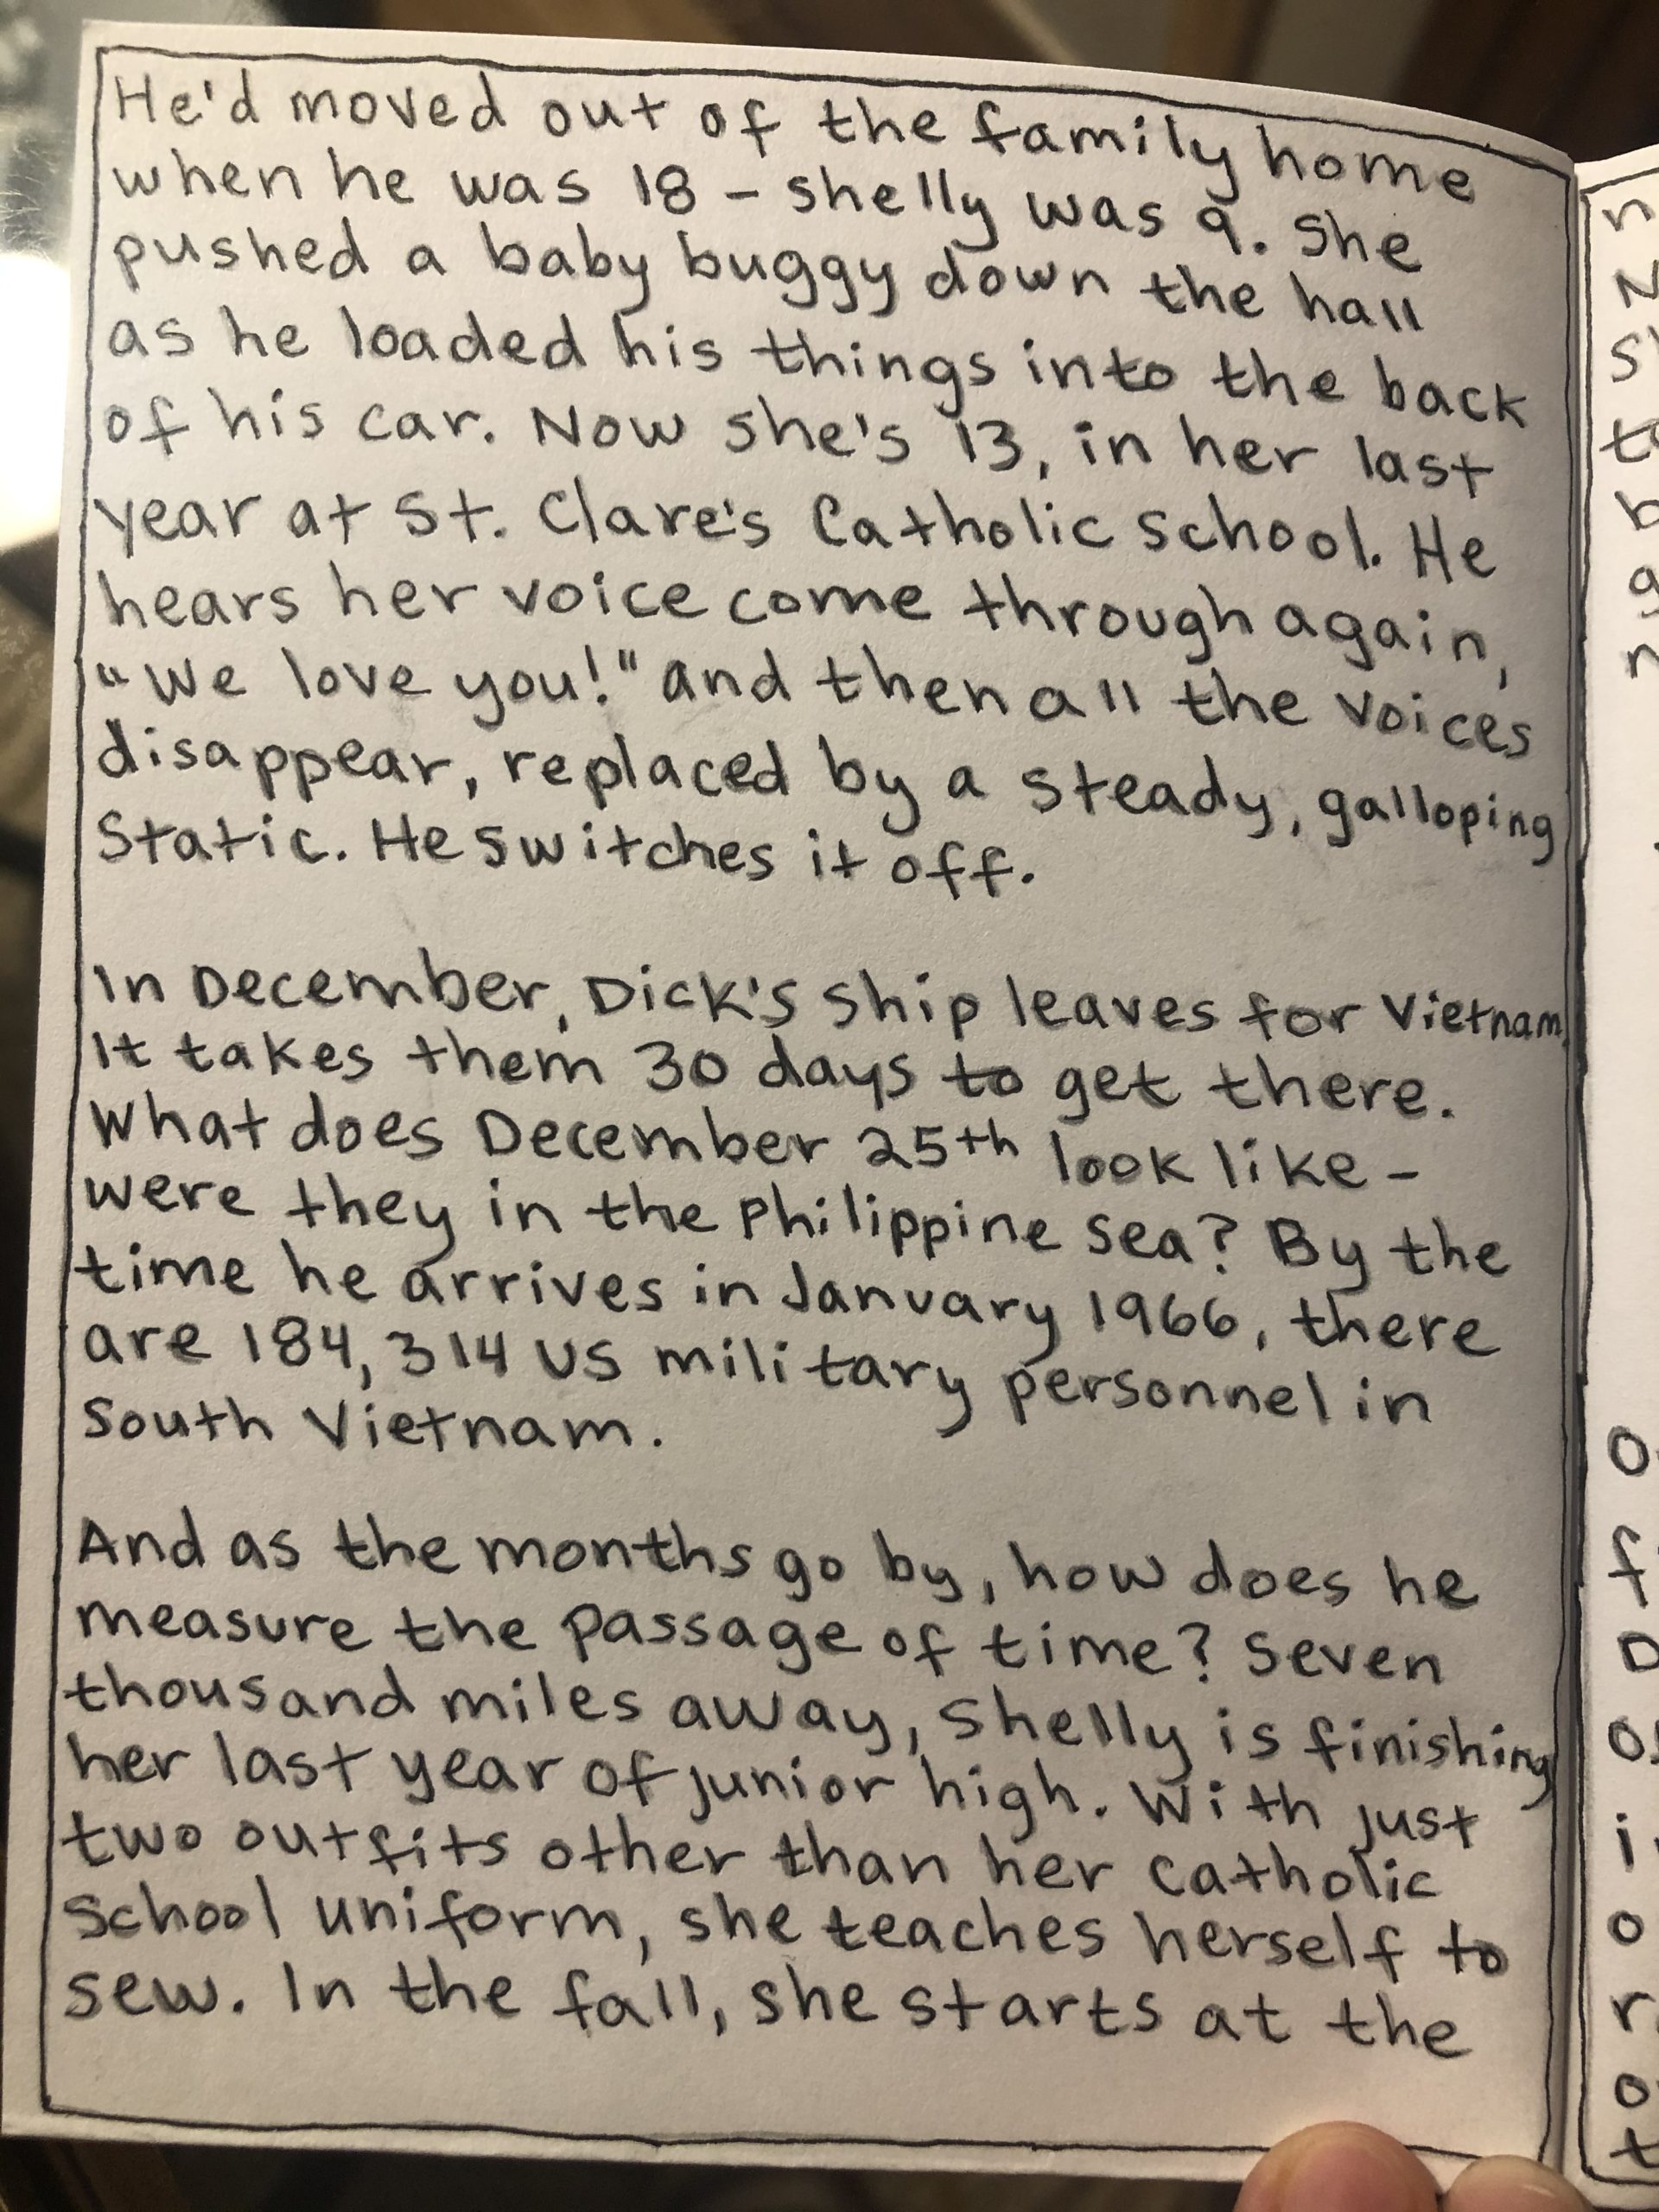 He'd moved out of the family home
when he was 18 – Shelly was 9. She
pushed a baby buggy down the hall
as he loaded his things into the back
of his car. Now she's 13, in her last
year at St. Clare's Catholic School. He
hears her voice come through again,
"We love you!" and then all the voices
disappear, replaced by a steady, galloping
static. He switches it off.
In December, Dick's ship leaves for Vietnam.
It takes them 30 days to get there.
What does December 25th look like –
were they in the Philippine Sea? By the
time he arrives in January 1966, there
are 184,314 US military personnel in
South Vietnam.
And as the months go by, how does he
measure the passage of time? Seven
thousand miles away, Shelly is finishing
her last year of junior high. With just
two outfits other than her Catholic
School uniform, she teaches herself to
sew. In the fall, she starts at the